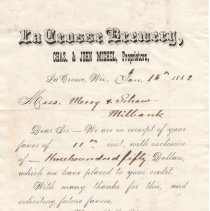 La Crosse Brewery,
CHAS. & JOHN MICHEL, Proprietors,
La Crosse, Wis., Jan. 14th 1882
Mess. Merry &
Milbank
Dear Sir:—We are in receipt of your
favor of 11th inst., with inclosure
of hundred fifty Dollars,
which we have placed to your credit.
With many thanks for this, and
soliciting future favors,